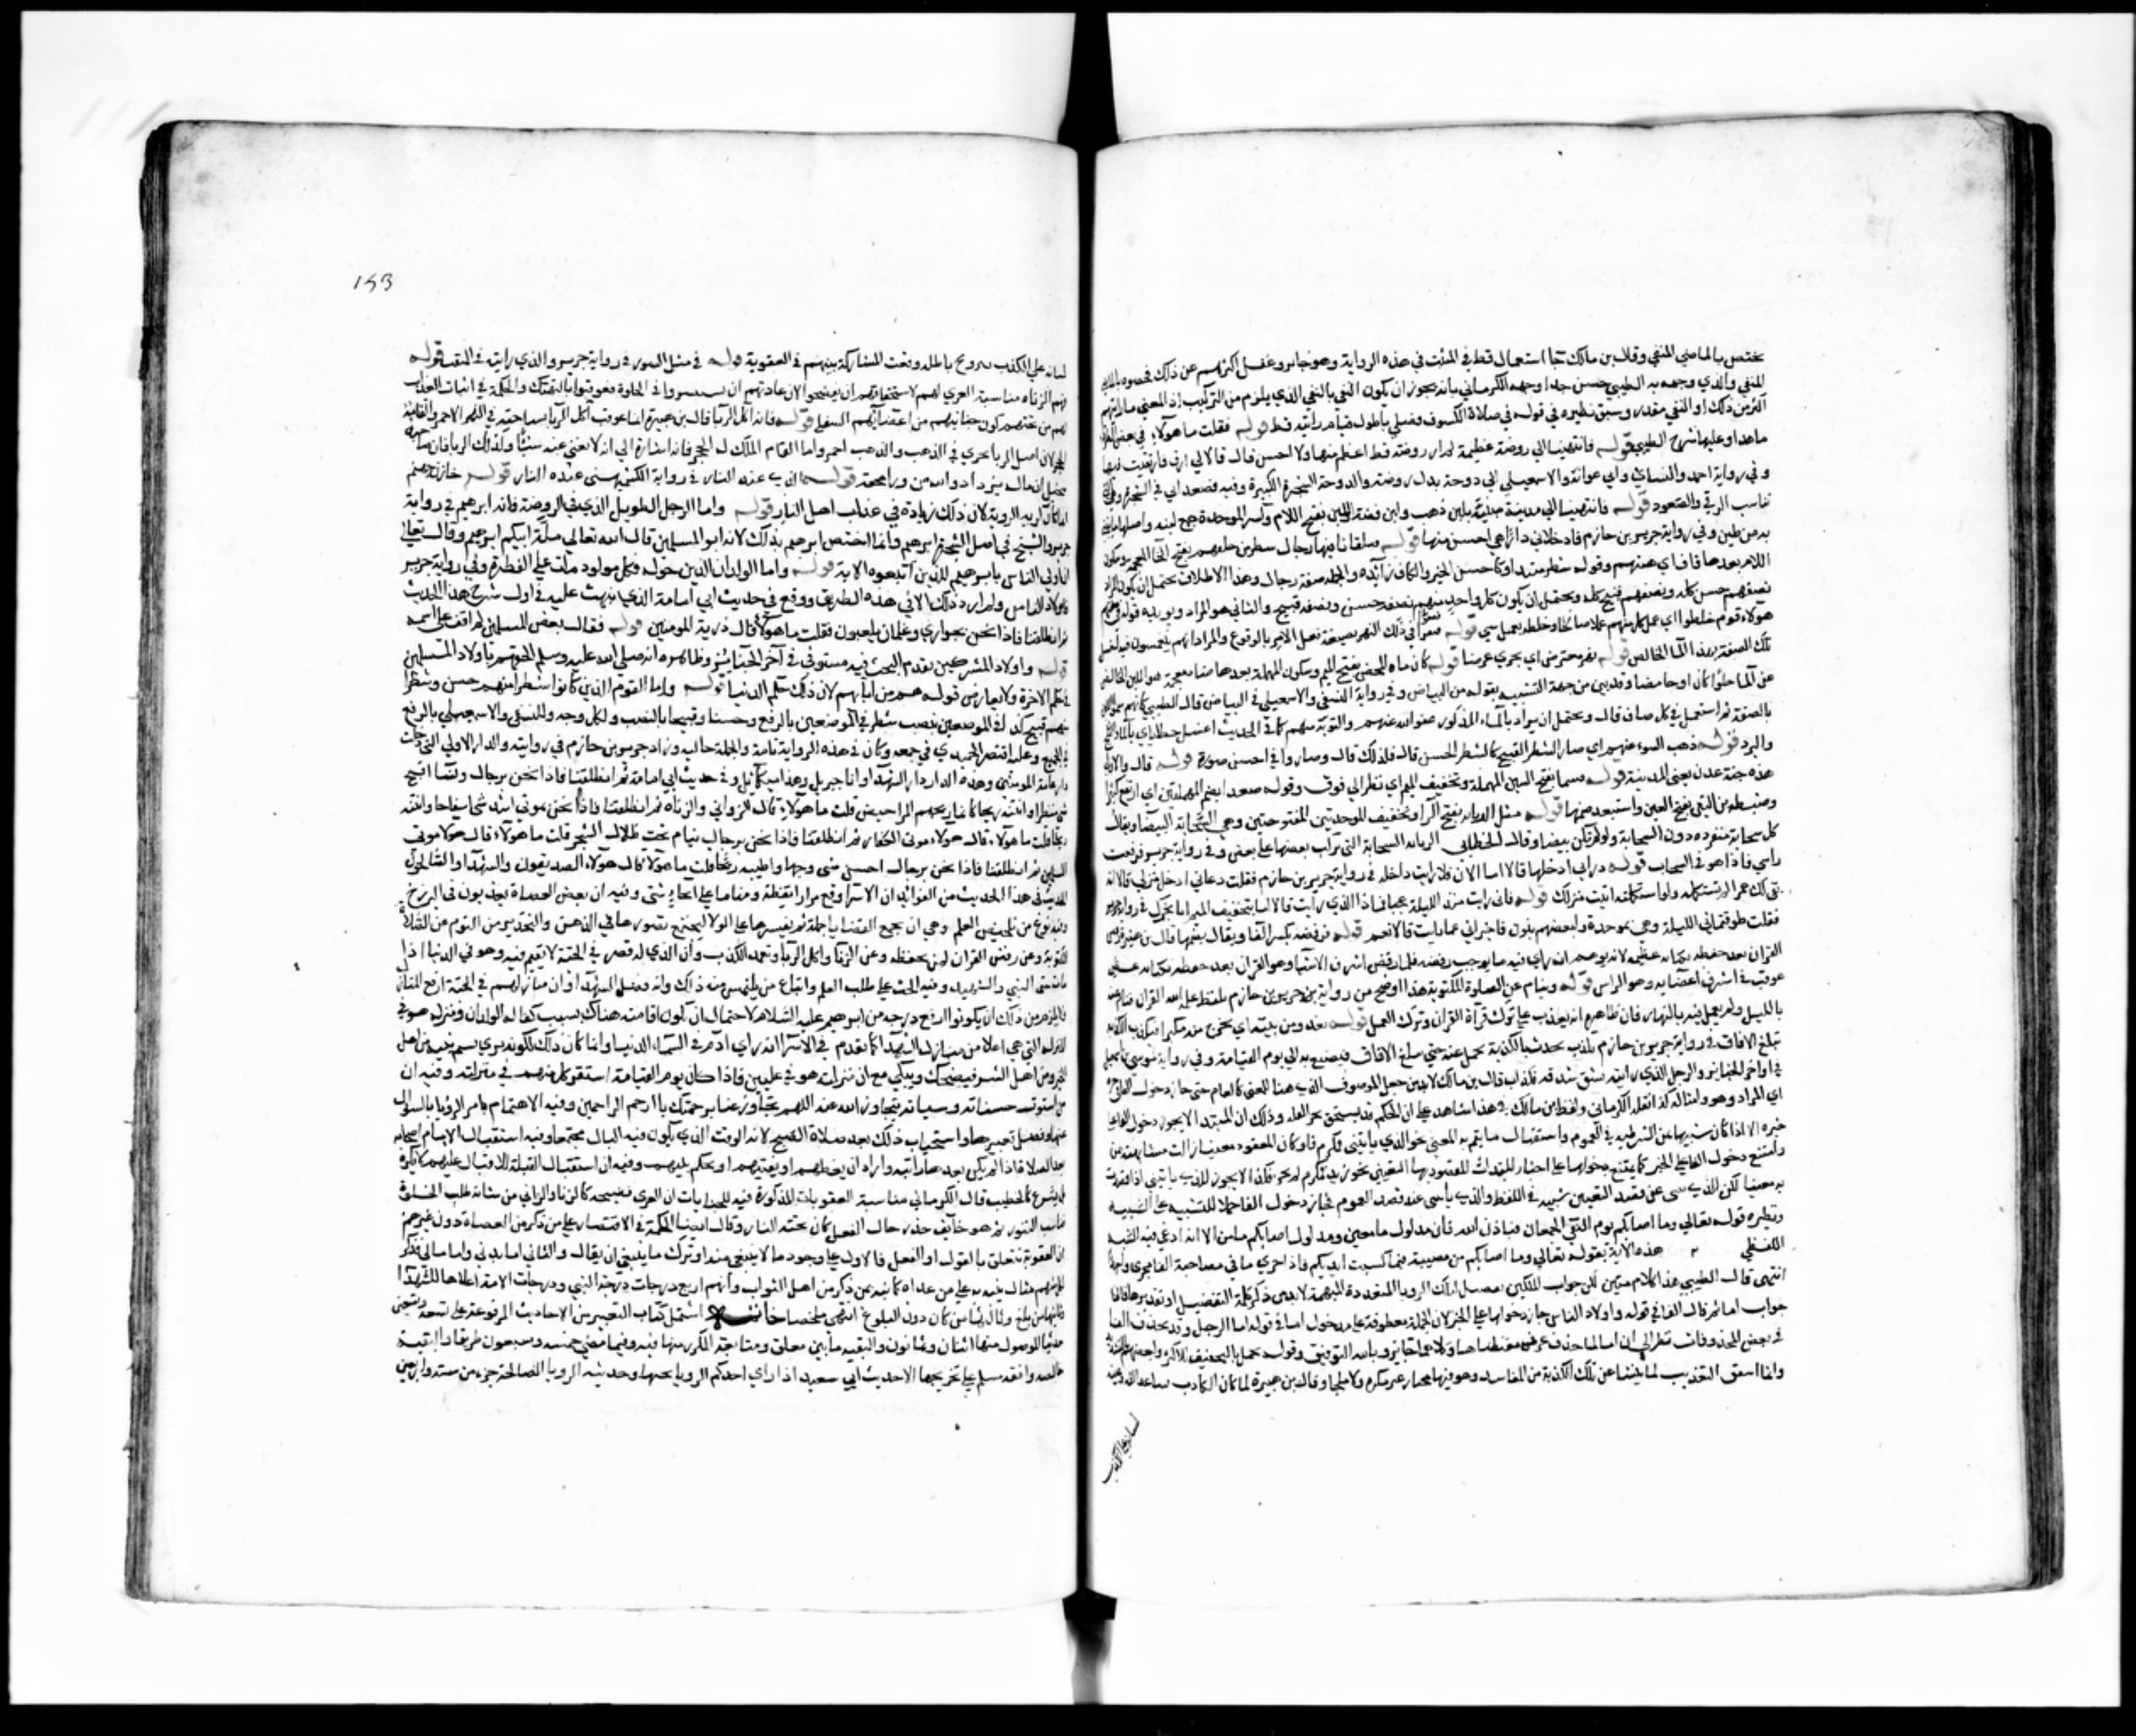 يختص بالماضي المنفي وقال ابن مالك جا استعمال قط في المثبت في هذه الرواية وهو جايز وغفل اكثرهم عن ذلك فخصوه بالماضي
المنفي والذي وجهه به الطيبي حسن جدا ووجهه الكرماني بانه يجوز ان يكون اكتفي بالنفي الذي يلزم من التركيب اذ المعني ما رايتهم
اكثر من ذلك او النفي مقدر وسبق نظيره في قوله في صلاة الكسوف فصلي باطول قيام رايته قط قوله فقلت ما هولاء في بعض الطرق
ما هذا وعليها شرح الطيبي قوله فانتهينا الي روضة عظيمة لم ار روضة قط اعظم منها ولا احسن قال قالا لي ارق فارتقيت فيها
وفي رواية احمد والنساي وابي عوانة والاسمعيلي الي دوحة بدل روضة والدوحة الشجرة الكبيرة وفيه فصعدا بي في الشجرة وهي التي
تناسب الرقي والصعود قوله فانتهينا الي مدينة مبنية بلبن ذهب ولبن فضة اللبن بفتح اللام وكسر الموحدة جمع لبنة واصلها ما يبني
به من طين وفي رواية جرير بن حازم فادخلاني دارا لم ار احسن منها قوله فتلقانا فيها رجال شطر من خلقهم بفتح الخا المعجمة وسكون
اللام بعدها قاف اي هيئتهم وقوله شطر مبتدا وكاحسن الخبر والكاف زايدة والجملة صفة رجال وهذا الاطلاق يحتمل ان يكون المراد
نصفهم حسن كله ونصفهم قبيح كله ويحتمل ان يكون كل واحد منهم نصفه حسن ونصفه قبيح والثاني هو المراد ويويده قوله في صفتهم
هولاء قوم خلطوا اي عمل كل منهم عملا صالحا وخلطه بعمل سي قوله فقعوا في ذلك النهر بصيغة فعل الامر بالوقوع والمراد انهم ينغمسون فيه ليغسل
تلك الصفة بهذا الما الخالص قوله نهر معترض اي يجري عرضا قوله كان ماه المحض بفتح الميم وسكون المهملة بعدها ضاد معجمة هو اللبن الخالص
عن الما حلوا كان او حامضا وقد بين من جهة التشبيه بقوله من البياض وفي رواية النسفي والاسمعيلي في البياض قال الطيبي كانهم سموا اللبن
بالصفة ثم استعمل في كل صاف قال ويحتمل ان يراد بالماء المذكور عفو الله عنهم والتوبة منهم كما في الحديث اغسل خطاياي بالماء والثلج
والبرد قوله ذهب السوء عنهم اي صار الشطر القبيح كالشطر الحسن قال فلذلك قال وصاروا في احسن صورة قوله قال قالا لي
هذه جنة عدن يعني المدينة قوله فسما بفتح السين المهملة وتخفيف الميم اي نظر الي فوق وقوله صعدا بضم المهملتين اي ارتفع كثيرا
وضبطه ابن التين بفتح العين واستبعد ضمها قوله مثل الربابة بفتح الرا وتخفيف الموحدتين المفتوحتين وهي السحابة البيضا ويقال
كل سحابة منفردة دون السحابة ولو لم تكن بيضا وقال الخطابي الربابة السحابة التي ركب بعضها علي بعض وفي رواية جرير فرفعت
راسي فاذا هو في السحاب قوله ذراني ادخله قالا اما الان فلا وانت داخله في رواية جرير بن حازم فقلت دعاني ادخل منزلي قالا انه
بقي لك عمر لم تستكمله ولو استكملته اتيت منزلك قوله فاني رايت منذ الليلة عجبا فما هذا الذي رايت قالا اما بتخفيف الميم انا نخبرك في رواية جرير
فقلت طوفتماني الليلة وهي بموحدة ولبعضهم بنون فاخبراني عما رايت قالا نعم قوله فيرفضه بكسر الفا ويقال بضمها قال ابن هبيرة رفض
القران بعد حفظه جناية عظيمة لانه يوهم انه راي فيه ما يوجب رفضه فلما رفض اشرف الاشيا وهو القران
عوقب في اشرف اعضايه وهو الراس قوله وينام عن الصلوة المكتوبة هذا اوضح من رواية جرير بن حازم بلفظ علمه الله القران فنام عنه
بالليل ولم يعمل فيه بالنهار فان ظاهره انه يعذب علي ترك قراة القران وترك العمل قوله يغدو من بيته اي يخرج منه مبكرا فيكذب الكذبة
تبلغ الافاق في رواية جرير بن حازم مكذب يحدث بالكذبة تحمل عنه حتي تبلغ الافاق فيصنع به الي يوم القيامة وفي رواية موسي بن اسمعيل
في اواخر الجنايز والرجل الذي رايته يشق شدقه فكذاب قال ابن مالك لا بد من جعل الموصوف الذي هنا للمعين كالعام حتي جاز دخول الفا في خبره
اي المراد هو وامثاله كذا نقله الكرماني ولفظ ابن مالك في هذا شاهد علي ان الحكم قد يستحق بجز العلة وذلك ان المبتدا لا يجوز دخول الفا علي
خبره الا اذا كان شبيها بمن الشرطية في العموم واستقبال ما يتم به المعني نحو الذي ياتيني فمكرم فلو كان المقصود معينا زالت مشابهته بمن
وامتنع دخول الفا علي الخبر كما يمتنع دخولها علي اخبار المبتدات المقصود بها التعيين نحو زيد فمكرم لم يجز فكذا لا يجوز للذي ياتيني اذا قصدت
به معينا لكن للذي ياتيني عن قصد التعيين شبيه في اللفظ والذي ياتيني عند قصد العموم فجاز دخول الفا حملا للشبيه علي الشبيه
ونظيره قوله تعالي وما اصابكم يوم التقي الجمعان فباذن الله فان مدلول ما معين ومدلول اصابكم ماض الا انه اوعي فيه الشبه
اللفظي هذه الاية بقوله تعالي وما اصابكم من مصيبة فبما كسبت ايديكم فاذا اجري ما في مصاحبة الفا مجري واحدا
انتهي قال الطيبي هذا كلام متين لكن جواب الملكين تفصيل لتلك الرويا المتعددة المبهمة لا بد من ذكر كلمة التفصيل او تقديرها فالفا
جواب اما ثم قال الفا في قوله واولاد الناس جاز دخولها علي الخبر لان الجملة معطوفة علي مدخول اما في قوله اما الرجل وقد تحذف الفا
في بعض المحذوفات نظرا الي ان اما لما حذف وبالله التوفيق وقوله تحمل بالتخفيف للاكثر ولبعضهم بالتشديد
وانما استحق التعذيب لما ينشا عن تلك الكذبة من المفاسد وهو فيها مختار غير مكره ولا ملجا وقال ابن هبيرة لما كان الكاذب يساعد انفه وعينه
لسانه علي الكذب
153
لسانه علي الكذب بترويج باطله وقعت المشاركة بينهم في العقوبة قوله في مثل التنور في رواية جرير والذي رايته في النقب قوله
فهم الزناه مناسبة العري لهم لاستحقاقهم ان يفضحوا لان عادتهم ان يستتروا في الخلوة فعوقبوا بالهتك والحكمة في اتيان العذاب
لهم من تحتهم كون جنايتهم من اعضائهم السفلي قوله فانه آكل الربا قال ابن هبيرة انما عوقب آكل الربا بسباحته في النهر الاحمر والقامه
الحجر لان اصل الربا يجري في الذهب والذهب احمر واما القام الملك له الحجر فانه اشارة الي انه لا يغني عنه شيئا وكذلك الربا فان صاحبه
يتخيل ان ماله يزداد والله من ورا محقه قوله الذي عنده النار في رواية الكشميهني عنده النار قوله خازن جهنم
انما كان كريه الروية لان ذلك زيادة في عذاب اهل النار قوله واما الرجل الطويل الذي في الروضة فانه ابرهيم في رواية
جرير والشيخ في اصل الشجرة ابرهيم وانما اختص ابرهيم بذلك لانه ابو المسلمين قال الله تعالي ملة ابيكم ابرهيم وقال تعالي
ان اولي الناس بابرهيم للذين اتبعوه الاية قوله واما الولدان الذين حوله فكل مولود مات علي الفطرة وفي رواية جرير
فاولاد الناس ولم ار ذلك الا في هذه الطريق ووقع في حديث ابي امامة الذي نبهت عليه في اول شرح هذا الحديث
ثم انطلقنا فاذا نحن بجواري وغلمان يلعبون فقلت ما هولاء قال ذرية المومنين قوله فقال بعض المسلمين لم اقف علي اسمه
قوله واولاد المشركين تقدم البحث فيه مستوفي في آخر الجنايز وظاهره انه صلي الله عليه وسلم الحقهم باولاد المسلمين
في حكم الاخرة ولا يعارض قوله هم من آبائهم لان ذلك حكم الدنيا قوله واما القوم الذين كانوا شطرا منهم حسن وشطرا
منهم قبيح كذا في الموضعين بنصب شطر في الموضعين بالرفع وحسنا وقبيحا بالنصب ولكل وجه وللنسفي والاسمعيلي بالرفع
في الجميع وعليه اقتصر الحميدي في جمعه وكان في هذه الرواية تامة والجملة حالية وزاد جرير بن حازم في روايته والدار الاولي التي دخلت
دار عامة المومنين وهذه الدار دار الشهدا وانا جبريل وهذا ميكائيل وفي حديث ابي امامة ثم انطلقنا فاذا نحن برجال ونسا اقبح
شي منظرا وانتنه ريحا كانما ريحهم المراحيض قلت ما هولاء قال الزواني والزناه ثم انطلقنا فاذا نحن بموتي اشد شي انتفاخا وانتنه
ريحا قلت ما هولاء قال هولاء موتي الكفار ثم انطلقنا فاذا نحن برجال نيام تحت ظلال الشجر قلت ما هولاء قال هولا موتي
المسلمين ثم انطلقنا فاذا نحن برجال احسن شي وجها واطيبه ريحا قلت ما هولا قال هولاء الصديقون والشهدا والصالحون
الحديث في هذا الحديث من الفوائد ان الاسرا وقع مرارا يقظة ومناما علي انحاء شتي وفيه ان بعض العصاة يعذبون في البرزخ
وفيه نوع من تلخيص العلم وهي ان يجمع القضايا جملة ثم يفسرها علي الولا ليجتمع تصورها في الذهن والتحذير من النوم عن الصلاة
المكتوبة وعن رفض القران لمن يحفظه وعن الزنا واكل الربا وتعمد الكذب وان الذي له قصر في الجنة لا يقيم فيه وهو في الدنيا اذا
مات حتي النبي والشهيد وفيه الحث علي طلب العلم واتباع من يلتمس منه ذلك وفيه فضل الشهدا وان منازلهم في الجنة ارفع المنازل
ولا يلزم من ذلك ان يكونوا ارفع درجة من ابرهيم عليه السلام لاحتمال ان يكون اقامته هناك بسبب كفالة الولدان ومنزله هو في
المنزلة التي هي اعلا من منازل الشهدا كما تقدم في الاسرا انه راي آدم في السماء الدنيا وانما كان ذلك لكونه يري نسم بنيه من اهل
الخير ومن اهل الشر فيضحك ويبكي مع ان منزلته هو في عليين فاذا كان يوم القيامة استقر كل منهم في منزلته وفيه ان
من استوت حسناته وسياته يتجاوز الله عنه اللهم تجاوز عنا برحمتك يا ارحم الراحمين وفيه الاهتمام بامر الرؤيا بالسوال
عنها وفضل تعبيرها واستحباب ذلك بعد صلاة الصبح لانه الوقت الذي يكون فيه البال مجتمعا وفيه استقبال الامام اصحابه
بعد الصلاة اذا لم يكن بعدها راتبة واراد ان يعظهم او يفتيهم او يحكم بينهم وفيه ان استقبال القبلة للاقبال عليهم لا يكره
بل يشرع كالخطيب قال الكرماني مناسبة العقوبات المذكورة فيه للجنايات ان العري فضيحة كالزنا والزاني من شانه طلب الخلوة
فناسب التنور ثم هو خايف حذر حال الفعل كان تحته النار وقال ايضا الحكمة في الاقتصار علي من ذكر من العصاة دون غيرهم
ان العقوبة تتعلق بالقول او الفعل فالاول علي وجود ما لا ينبغي منه او ترك ما ينبغي ان يقال والثاني اما بدني واما مالي فذكر
لكل منهم مثال ينبه به علي من عداه كما نبه بمن ذكر من اهل الثواب وانهم اربع درجات درجة النبي ودرجات الامة اعلاها الشهدا
وثانيها من بلغ وثالثها من كان دون البلوغ انتهي ملخصا خاتمة اشتمل كتاب التعبير من الاحاديث المرفوعة علي تسعة وتسعين
حديثا الموصول منها اثنان وثمانون والبقية ما بين معلق ومتابعة المكرر منها فيه وفيما مضي خمسة وسبعون طريقا والبقية
خالصة وافقه مسلم علي تخريجها الا حديث ابي سعيد اذا راي احدكم الرويا يحبها وحديثه الرويا الصالحة جزء من ستة واربعين